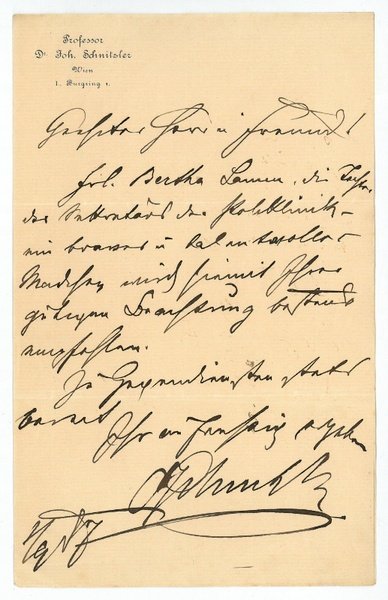 Professor
Dr Joh. Schnitzler
Wien
I. Burgring 1.
Geehrter Herr u Freund!
Frl. Bertha die Tochter
des Sekretärs der Poliklinik –
ein braves u talentvolles
Mädchen wird hiemit Ihrer
gütigen Beachtung bestens
empfohlen.
Zu Gegendiensten stets
bereit
Ihr aufrichtig ergebener
JSchnitzler
1/9 87